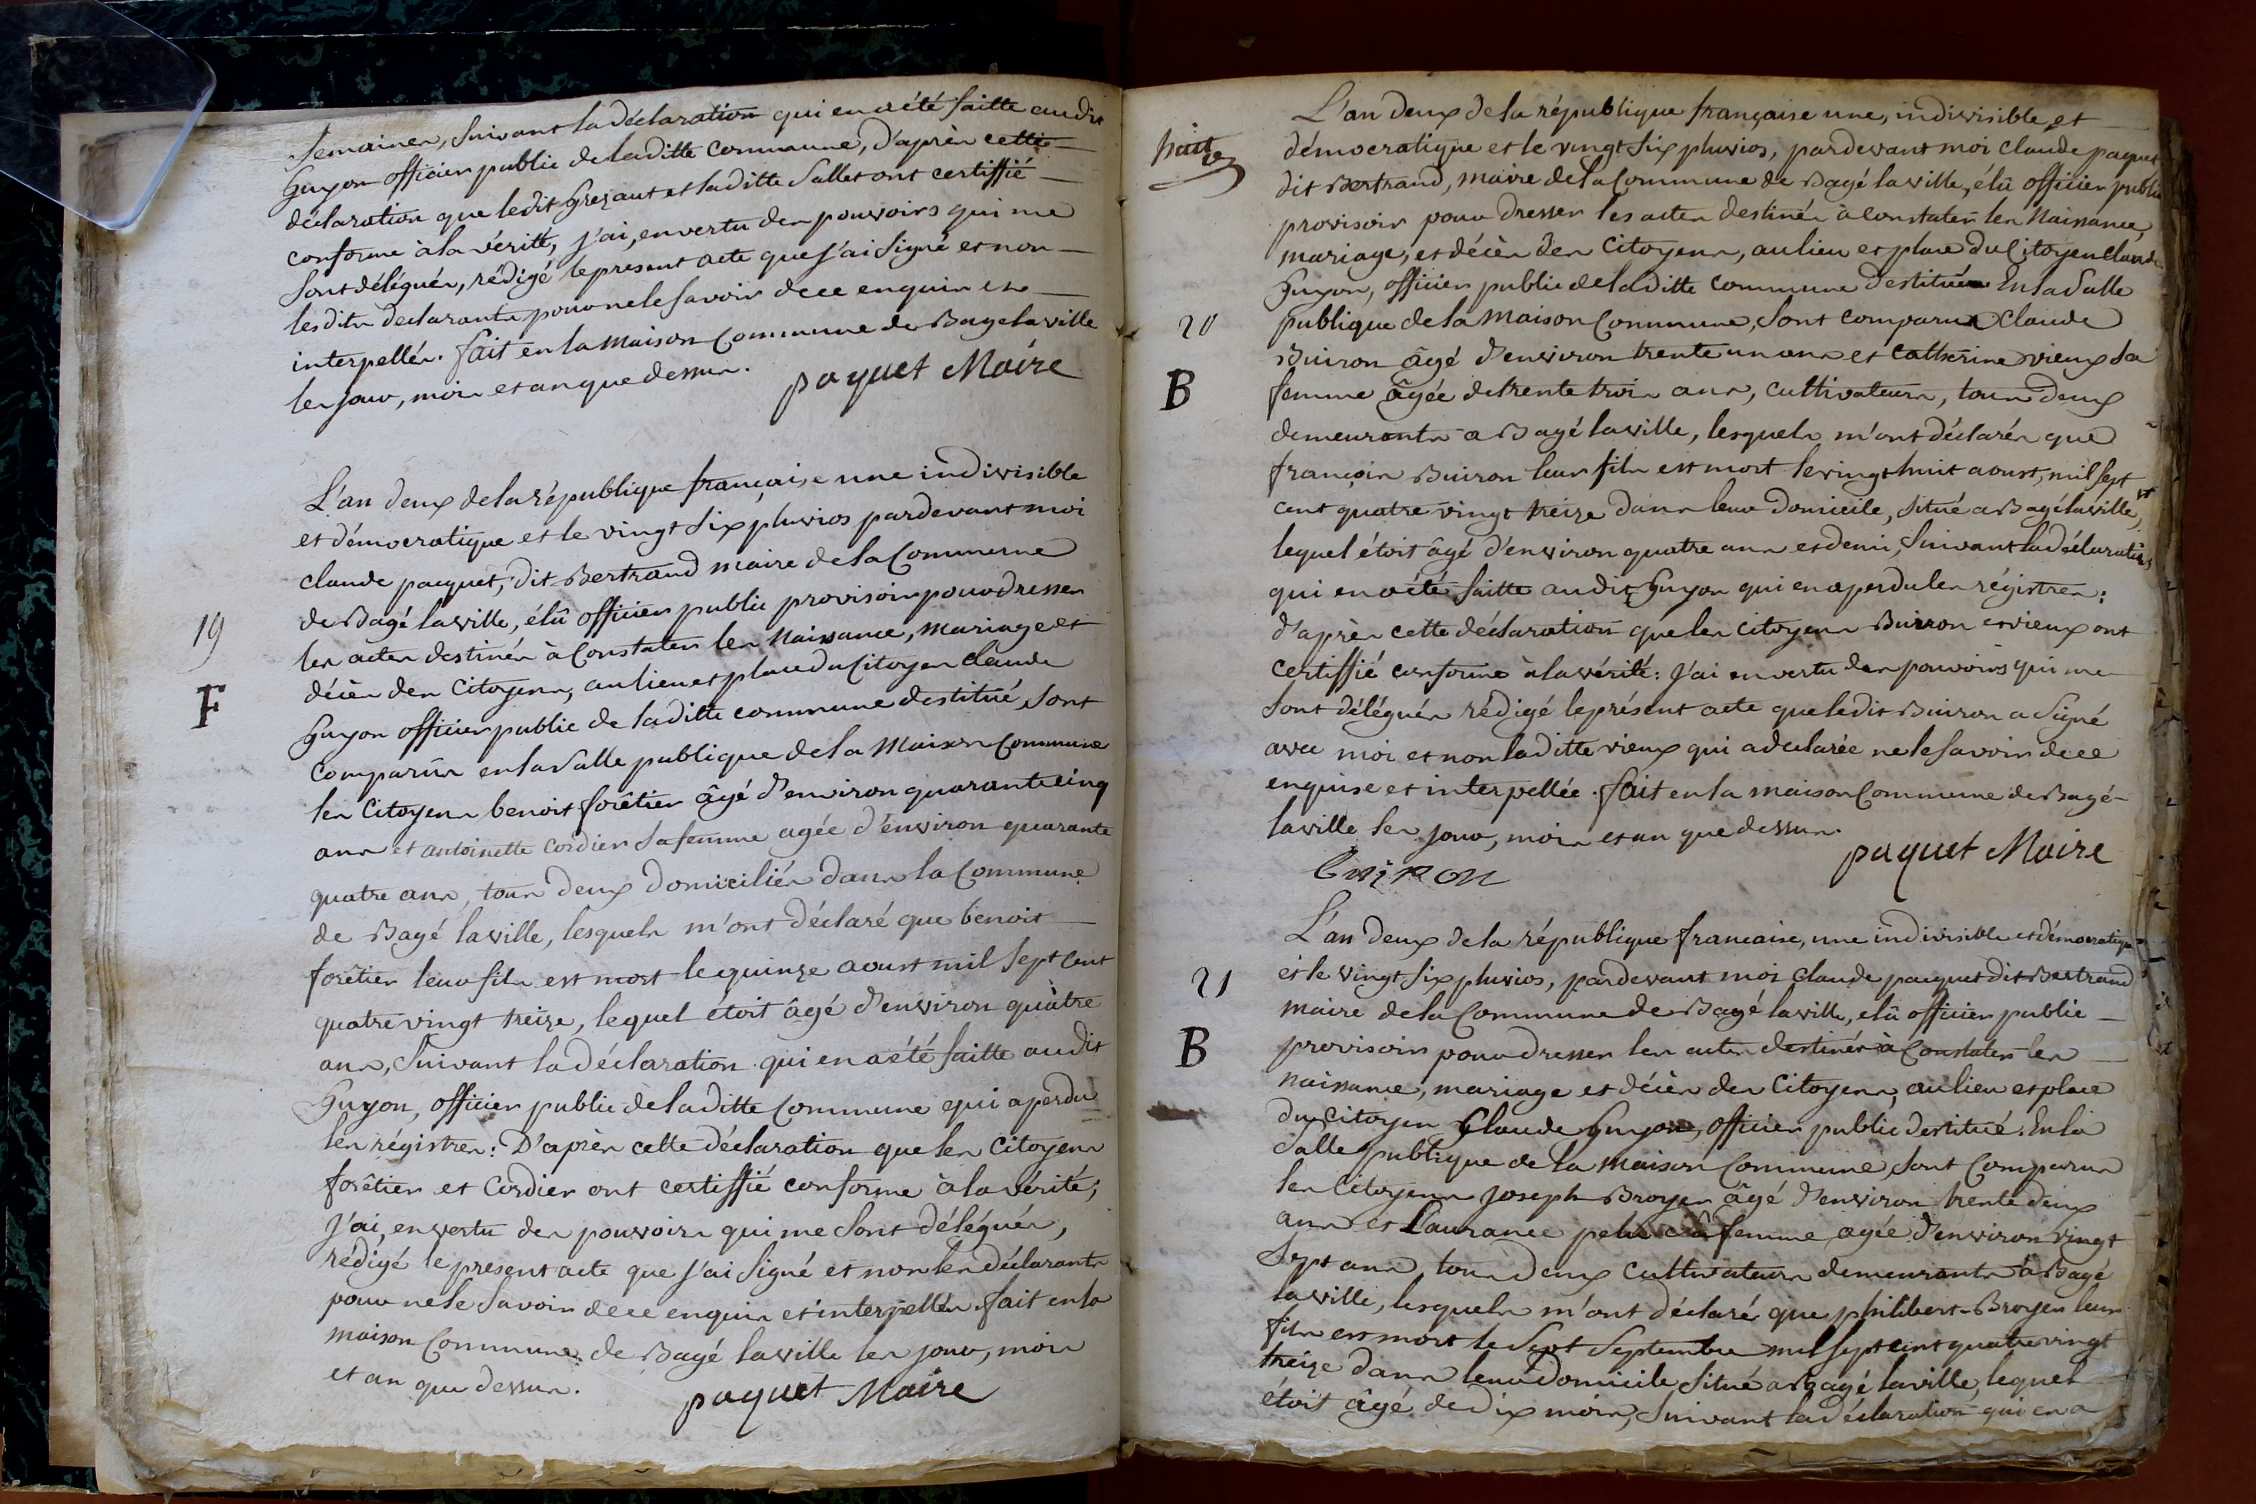 Semaines, suivant la déclaration qui en a été faitte audit
Guyon officier public de laditte commune, d'après cette
déclaration que ledit Grezaut et laditte Sallet ont certiffié
conforme à la vérité, j'ai, en vertu des pouvoirs qui me
sont délégués, rédigé le present acte que j'ai signé et non
lesdits declarants pour ne le savoir de ce enquis et
interpellés. fait en la maison commune de Bagé la ville
les jour, mois et an que dessus.
paquet Maire
19
F
L'an deux de la république française une indivisible
et démocratique et le vingt six pluvios pardevant moi
claude paquet, dit Bertrand maire de la Commune
de Bagé la ville, élû officier public provisoir pour dresser
les actes destinés à constater les Naissance, mariage et
décès des Citoyens, au lieu et place du Citoyen claude
Guyon officier public de laditte commune destitué, sont
comparûs en la Salle publique de la Maison Commune
les Citoyens benoit forêtier âgé d'environ quarante cinq
ans et antoinette Cordier sa femme agée d'environ quarante
quatre ans, tous deux domiciliés dans la Commune
de Bagé la ville, lesquels m'ont déclaré que benoit
forêtier leur fils est mort le quinze aoust mil Sept Cent
quatre vingt treize, lequel étoit âgé d'environ quatre
ans, suivant la déclaration qui en a été faitte audit
Guyon, officier public de laditte Commune qui a perdu
les régistres: D'après cette déclaration que les Citoyens
forêtier et Cordier ont certiffié conforme à la vérité;
J'ai, en vertu des pouvoirs qui me sont délégués,
rédigé le present acte que j'ai signé et non les déclarants
pour ne le Savoir de ce enquis et interpellés. fait en la
maison Commune de Bagé la ville les jour, mois
et an que dessus.
paquet Maire
L'an deux de la république française une, indivisible et
démocratique et le vingt six pluvios, pardevant moi claude paquet
dit Bertrand, maire de la Commune de Bagé la ville, élû officier public
provisoir pour dresser les actes destinés à constater les Naissance,
mariage, et décès des Citoyens, au lieu et place du Citoyen Claude
Guyon, officier public de laditte commune destitué. En la Salle
20
publique de la maison Commune, sont comparus Claude
Buiron âgé d'environ trente un ans et catherine vieux sa
B
femme âgée de trente trois ans, cultivateurs, tous deux
demeurants a Bagé la ville, lesquels m'ont déclarés que
françois Buiron leur fils est mort le vingt huit aoust, mil sept
cent quatre vingt treize dans leur domicile, situé a Bagé la ville,
lequel étoit âgé d'environ quatre ans et demi, suivant la déclaration
qui en a été faitte audit Guyon qui en a perdu les régistres:
d'après cette déclaration que les citoyens Buiron et vieux ont
certiffié conforme à la vérité: J'ai en vertu des pouvoirs qui me
sont délégués rédigé le présent acte que ledit Buiron a signé
avec moi et non laditte vieux qui a declarée ne le savoir de ce
enquise et interpellée. fait en la maison Commune de Bagé
la ville les jour, mois et an que dessus.
paquet Maire
Buiron
L'an deux de la république francaise, une indivisible et démocratique
21
et le vingt six pluvios, pardevant moi claude paquet dit Bertrand
maire de la Commune de Bagé la ville, elû officier public
B
provisoir pour dresser les actes destinés à constater les
naissance, mariage et décès des Citoyens, au lieu et place
du Citoyen Claude Guyon, officier public destitué. En la
Salle publique de la maison Commune, sont comparus
les Citoyens joseph Broyer âgé d'environ trente deux
ans et Laurance sa femme agée d'environ vingt
sept ans tous deux cultivateurs demeurants a Bagé
la ville, lesquels m'ont déclaré que philibert Broyer leur
fils est mort le Sept Septembre mil sept cent quatre vingt
treize dans leur domicile situé a Bagé la ville, lequel
étoit âgé de dix mois, suivant la déclaration qui en a